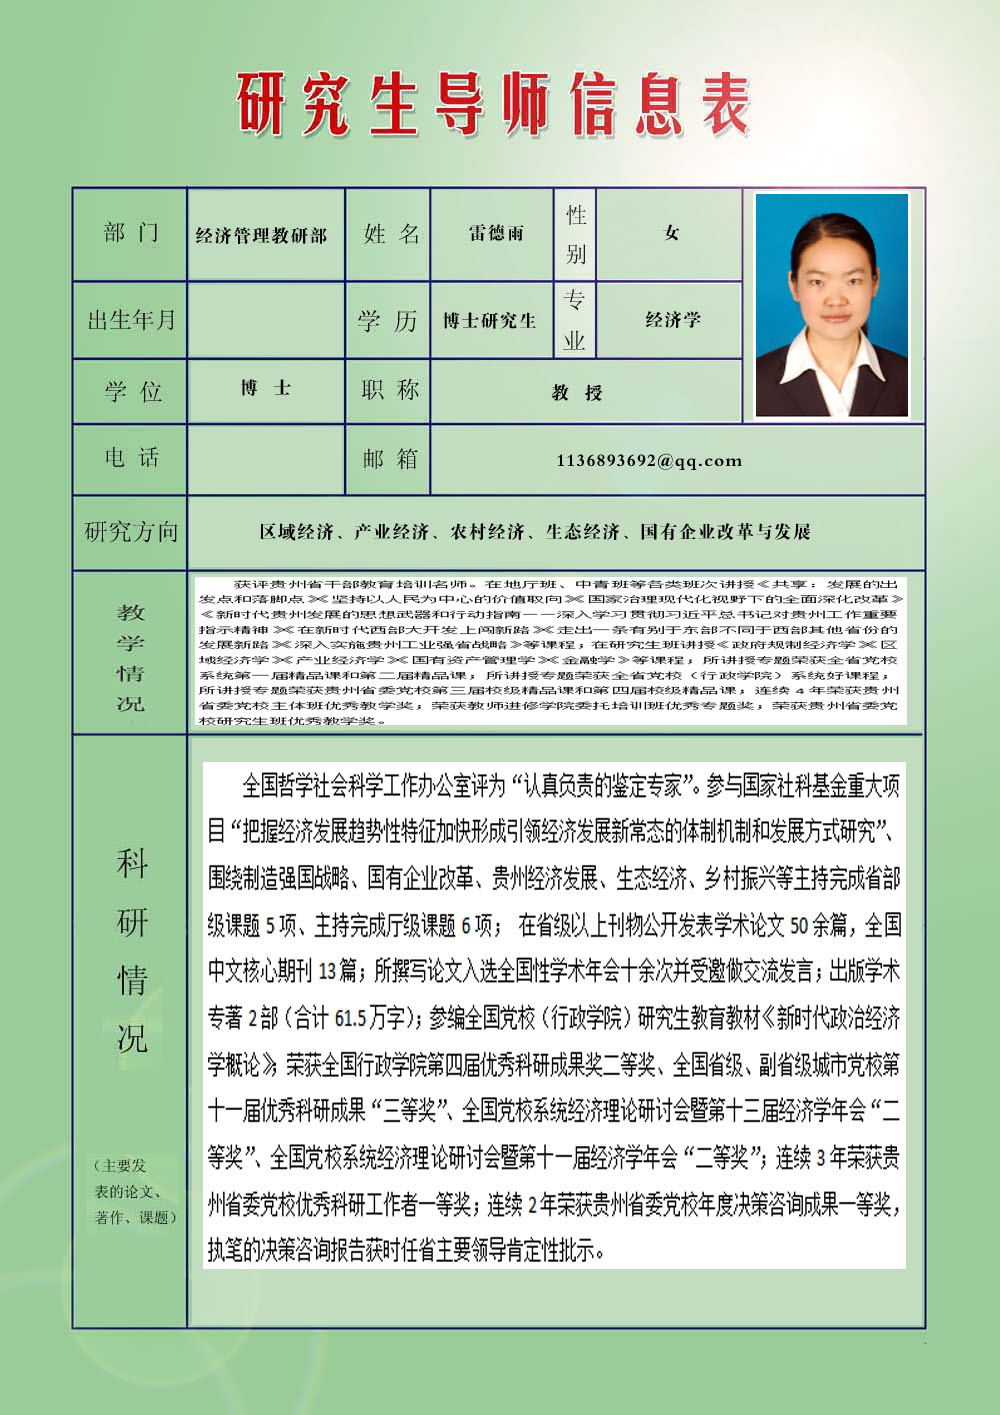 研究生导师信息表
部 门 经济管理教研部 姓 名 雷德雨 性别 女
出生年月 学 历 博士研究生 专业 经济学
学 位 博 士 职 称 教 授
电 话 邮 箱 1136893692@qq.com
研究方向 区域经济、产业经济、农村经济、生态经济、国有企业改革与发展
教学情况
获评贵州省干部教育培训名师。在地厅班、中青班等各类班次讲授《共享：发展的出
发点和落脚点》《坚持以人民为中心的价值取向》《国家治理现代化视野下的全面深化改革》
《新时代贵州发展的思想武器和行动指南——深入学习贯彻习近平总书记对贵州工作重要
指示精神》《在新时代西部大开发上闯新路》《走出一条有别于东部不同于西部其他省份的
发展新路》《深入实施贵州工业强省战略》等课程；在研究生班讲授《政府规制经济学》《区
域经济学》《产业经济学》《国有资产管理学》《金融学》等课程，所讲授专题荣获全省党校
系统第一届精品课和第二届精品课，所讲授专题荣获全省党校（行政学院）系统好课程，
所讲授专题荣获贵州省委党校第三届校级精品课和第四届校级精品课，连续 4 年荣获贵州
省委党校主体班优秀教学奖；荣获教师进修学院委托培训班优秀专题奖；荣获贵州省委党
校研究生班优秀教学奖。
科研情况
（主要发
表的论文、
著作、课题）
全国哲学社会科学工作办公室评为“认真负责的鉴定专家”。参与国家社科基金重大项
目“把握经济发展趋势性特征加快形成引领经济发展新常态的体制机制和发展方式研究”、
围绕制造强国战略、国有企业改革、贵州经济发展、生态经济、乡村振兴等主持完成省部
级课题 5 项、主持完成厅级课题 6 项； 在省级以上刊物公开发表学术论文 50 余篇，全国
中文核心期刊 13 篇；所撰写论文入选全国性学术年会十余次并受邀做交流发言；出版学术
专著 2 部（合计 61.5 万字）；参编全国党校（行政学院）研究生教育教材《新时代政治经济
学概论》；荣获全国行政学院第四届优秀科研成果奖二等奖、全国省级、副省级城市党校第
十一届优秀科研成果“三等奖”、全国党校系统经济理论研讨会暨第十三届经济学年会“二
等奖”、全国党校系统经济理论研讨会暨第十一届经济学年会“二等奖”；连续 3 年荣获贵
州省委党校优秀科研工作者一等奖；连续 2 年荣获贵州省委党校年度决策咨询成果一等奖，
执笔的决策咨询报告获时任省主要领导肯定性批示。